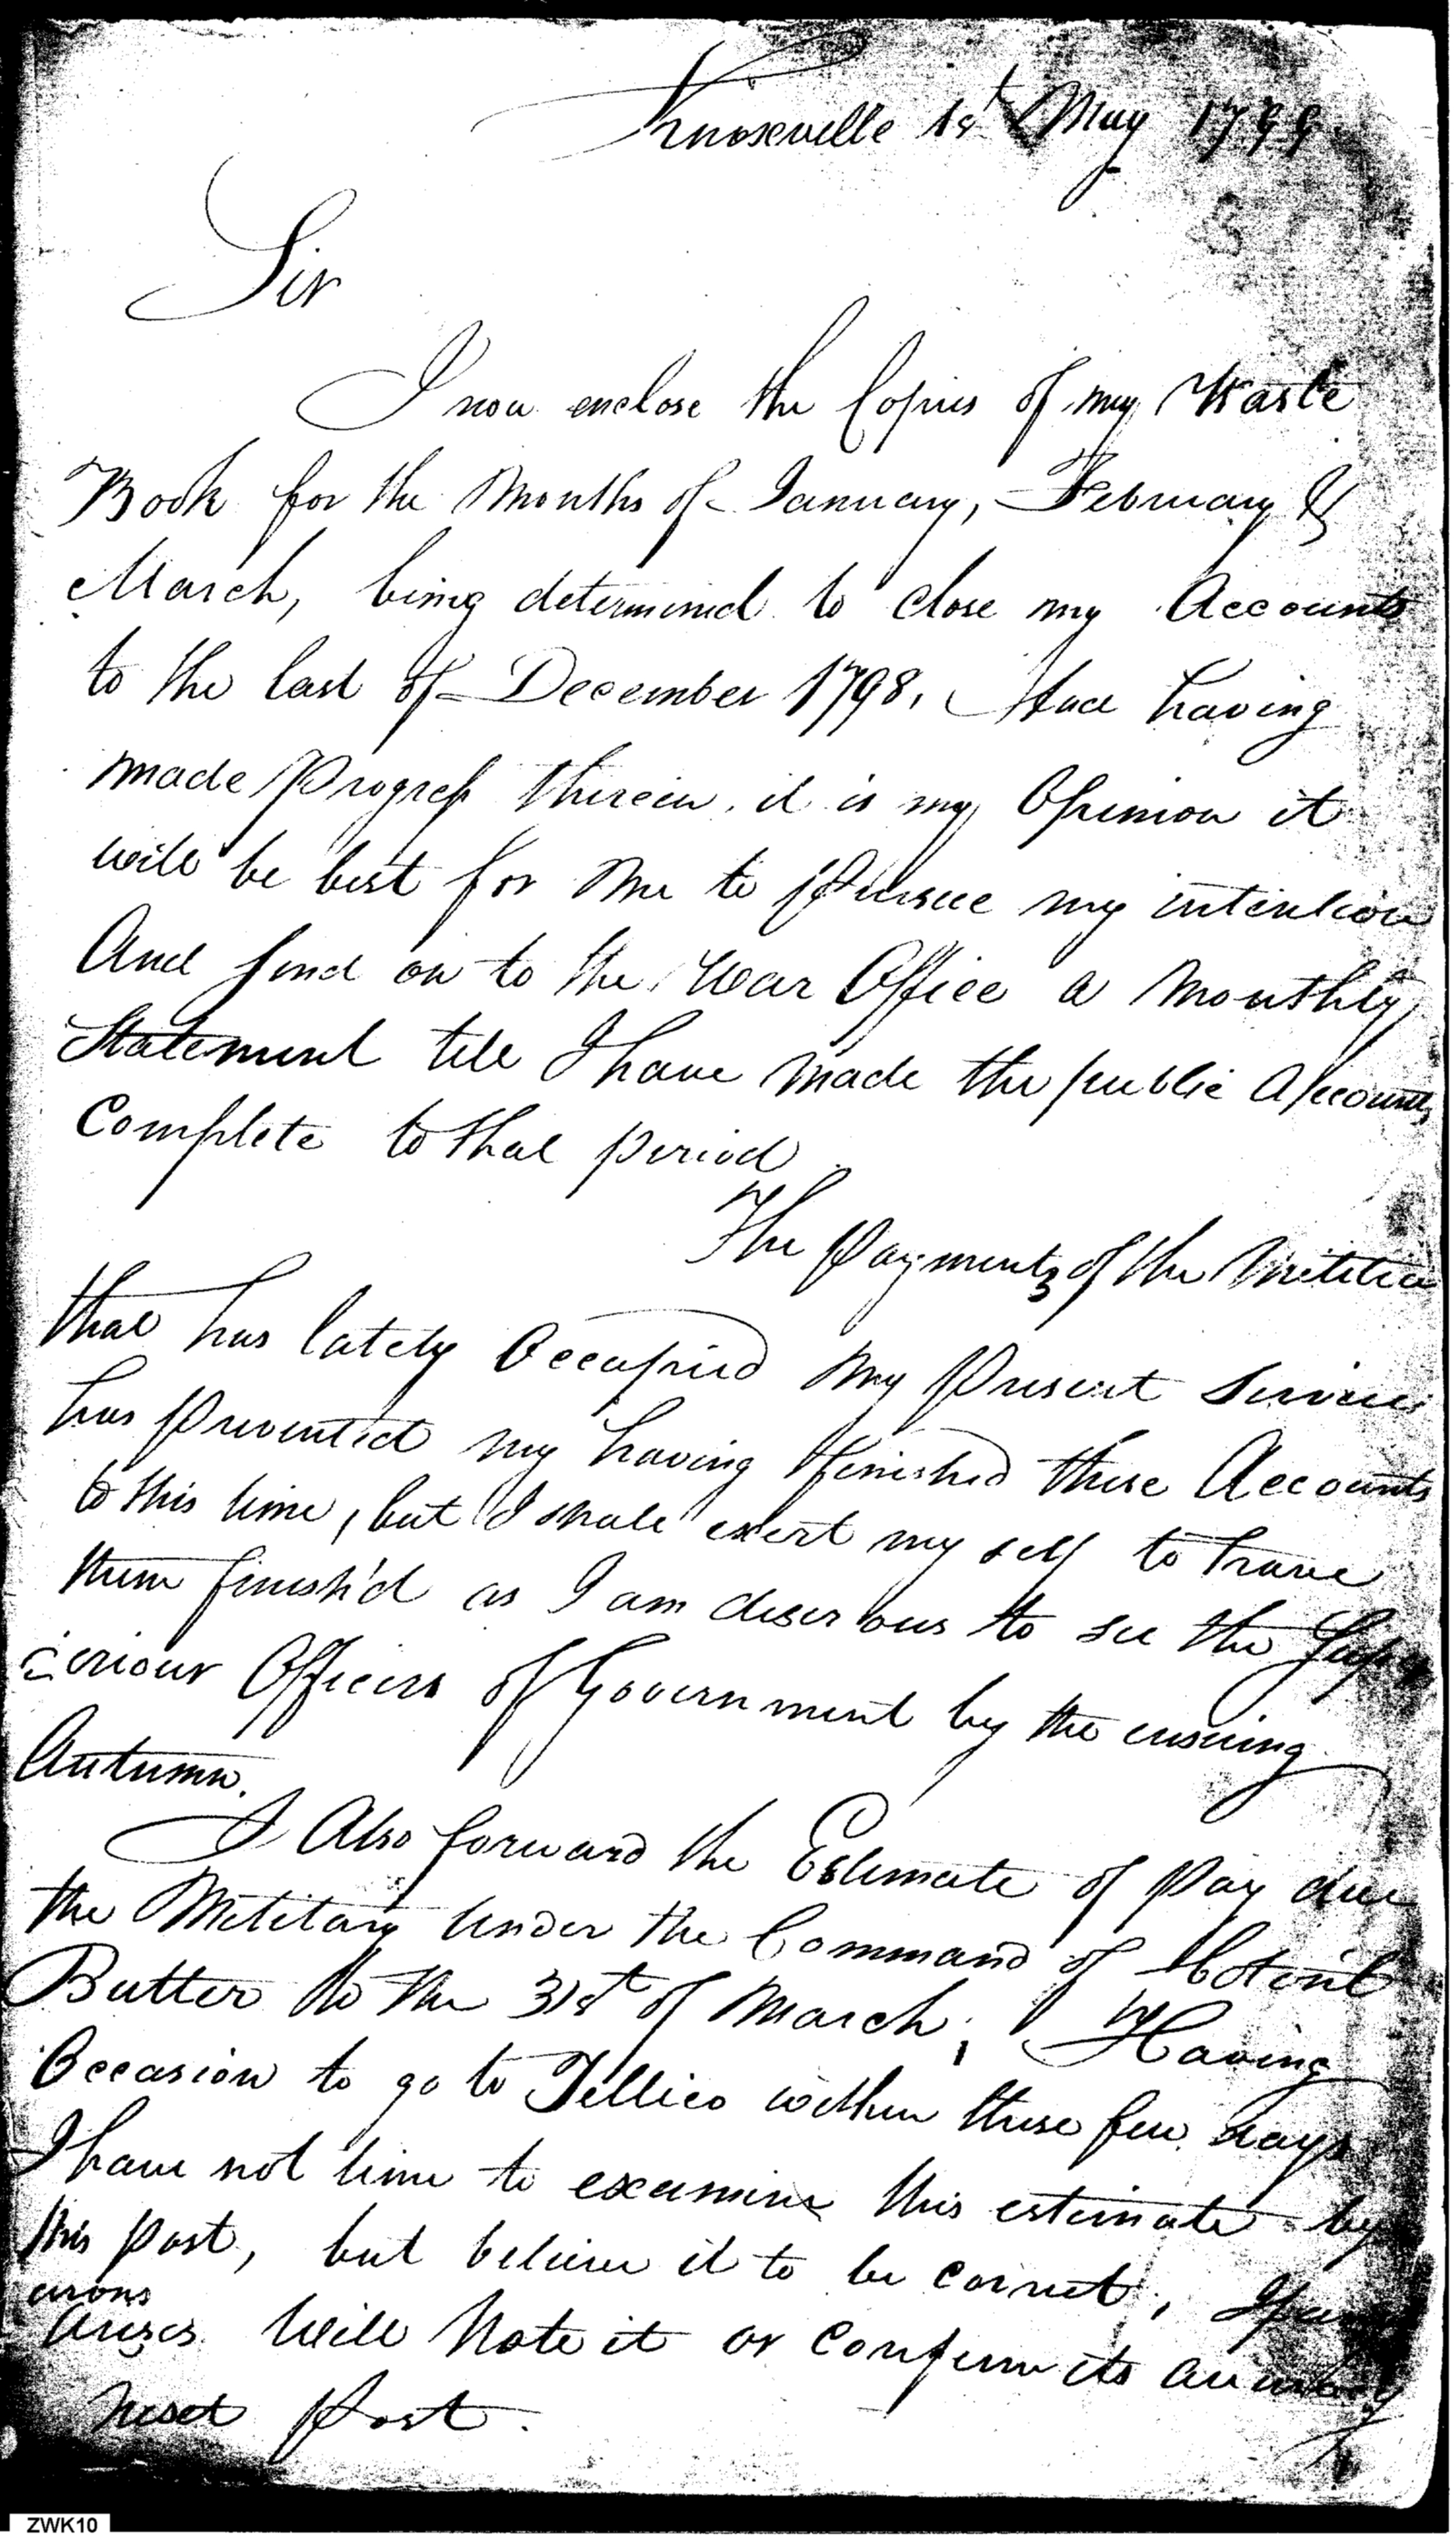 Knoxville 1st May 1799
Sir
I now enclose the Copies of my Waste
Book for the Months of January, February &
March, being determined to close my Accounts
to the last of December 1798, having
made Progress therein, it is my Opinion it
will be best for me to pursue my intention
And send on to the War Office a Monthly
Statement till I have made the public Accounts
Complete to that period
The payments of the Militia
that has lately Occupied my Present Services
has prevented my having finished these Accounts
to this time, but I shall exert my self to have
them finish'd as I am desirous to see the Supe
=eriour Officers of Government by the ensuing
Autumn.
I Also forward the Estimate of Pay due
the Military Under the Command of Coll.
Butler to the 31st of March; Having
Occasion to go to Tellico within these few days
I have not time to examine this estimate by
this post, but believe it to be correct, If any
errors
Arises will Note it or Confirm its accuracy
next Post.
ZWK10